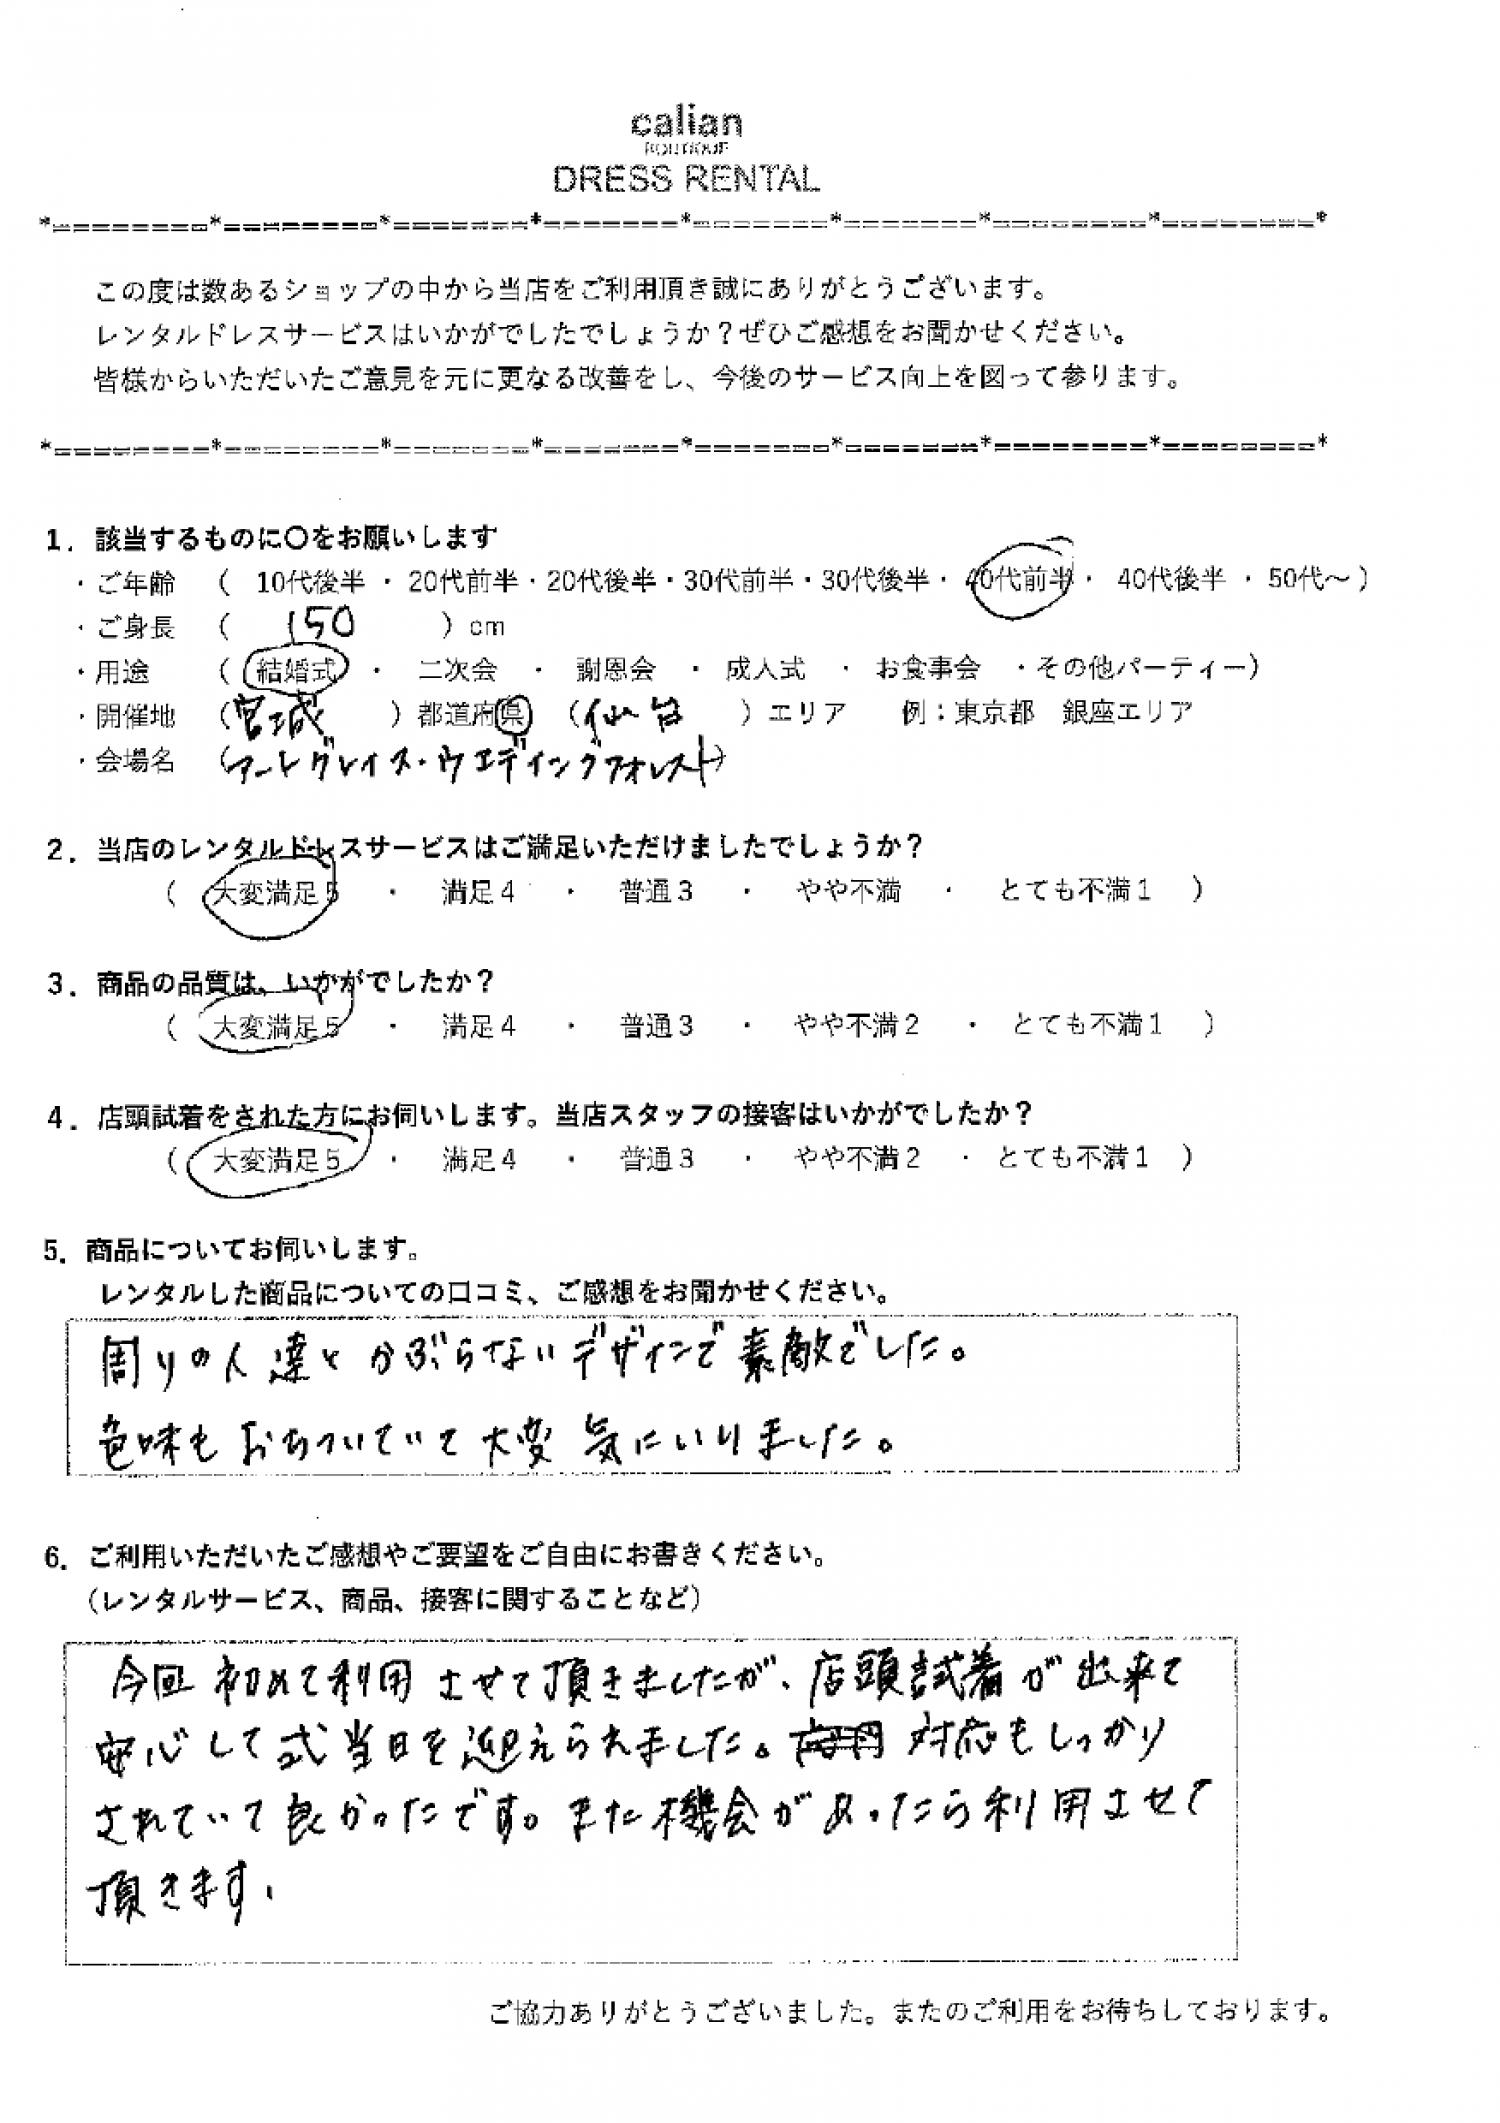 calian
BOUTIQUE
DRESS RENTAL
*========*========*=======*=======*=======*=======*========*========*
この度は数あるショップの中から当店をご利用頂き誠にありがとうございます。
レンタルドレスサービスはいかがでしたでしょうか？ぜひご感想をお聞かせください。
皆様からいただいたご意見を元に更なる改善をし、今後のサービス向上を図って参ります。
*========*========*=======*=======*=======*=======*========*========*
1．該当するものに〇をお願いします
・ご年齢 （ 10代後半 ・ 20代前半・20代後半・30代前半・30代後半・ 40代前半・ 40代後半 ・ 50代～）
・ご身長 （ 150 ）cm
・用途 （ 結婚式 ・ 二次会 ・ 謝恩会 ・ 成人式 ・ お食事会 ・その他パーティー）
・開催地 （宮城 ）都道府県 （仙台 ）エリア 例：東京都 銀座エリア
・会場名 （アートグレイス・ウエディングフォレスト）
2．当店のレンタルドレスサービスはご満足いただけましたでしょうか？
（ 大変満足５ ・ 満足４ ・ 普通３ ・ やや不満 ・ とても不満１ ）
3．商品の品質は、いかがでしたか？
（ 大変満足５ ・ 満足４ ・ 普通３ ・ やや不満２ ・ とても不満１ ）
4．店頭試着をされた方にお伺いします。当店スタッフの接客はいかがでしたか？
（ 大変満足５ ・ 満足４ ・ 普通３ ・ やや不満２ ・ とても不満１ ）
5．商品についてお伺いします。
レンタルした商品についての口コミ、ご感想をお聞かせください。
周りの人達とかぶらないデザインで素敵でした。
色味もおちついていて大変気にいりました。
6．ご利用いただいたご感想やご要望をご自由にお書きください。
（レンタルサービス、商品、接客に関することなど）
今回初めて利用させて頂きましたが、店頭試着が出来て
安心して式当日を迎えられました。対応もしっかり
されていて良かったです。また機会があったら利用させて
頂きます。
ご協力ありがとうございました。またのご利用をお待ちしております。